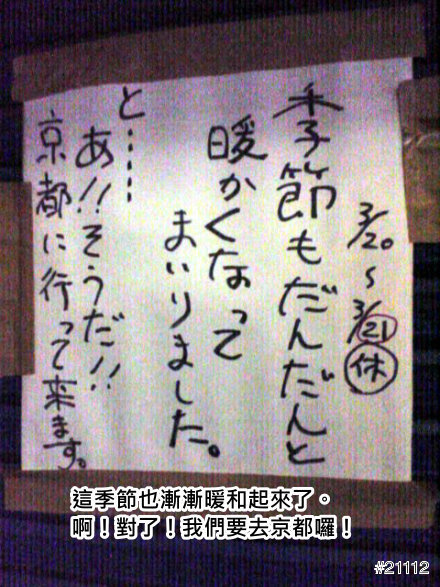 3/20〜3/21休
季節もだんだんと
暖かくなって
まいりました。
と……
あ!!そうだ!!
京都に行って来ます。
這季節也漸漸暖和起來了。
啊！對了！我們要去京都囉！
#21112